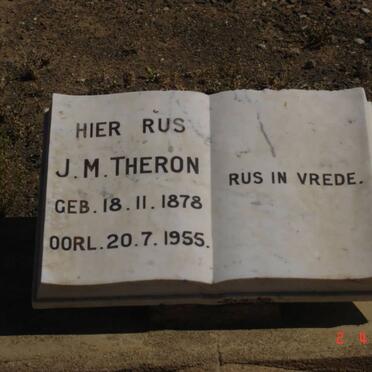 HIER RUS
J.M.THERON
GEB.18.11.1878
OORL.20.7.1955.
RUS IN VREDE.